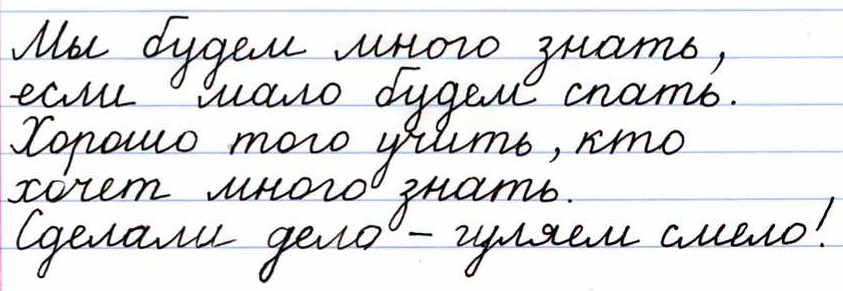 Мы будем много знать,
если мало будем спать.
Хорошо того учить, кто
хочет много знать.
Сделали дело – гуляем смело!